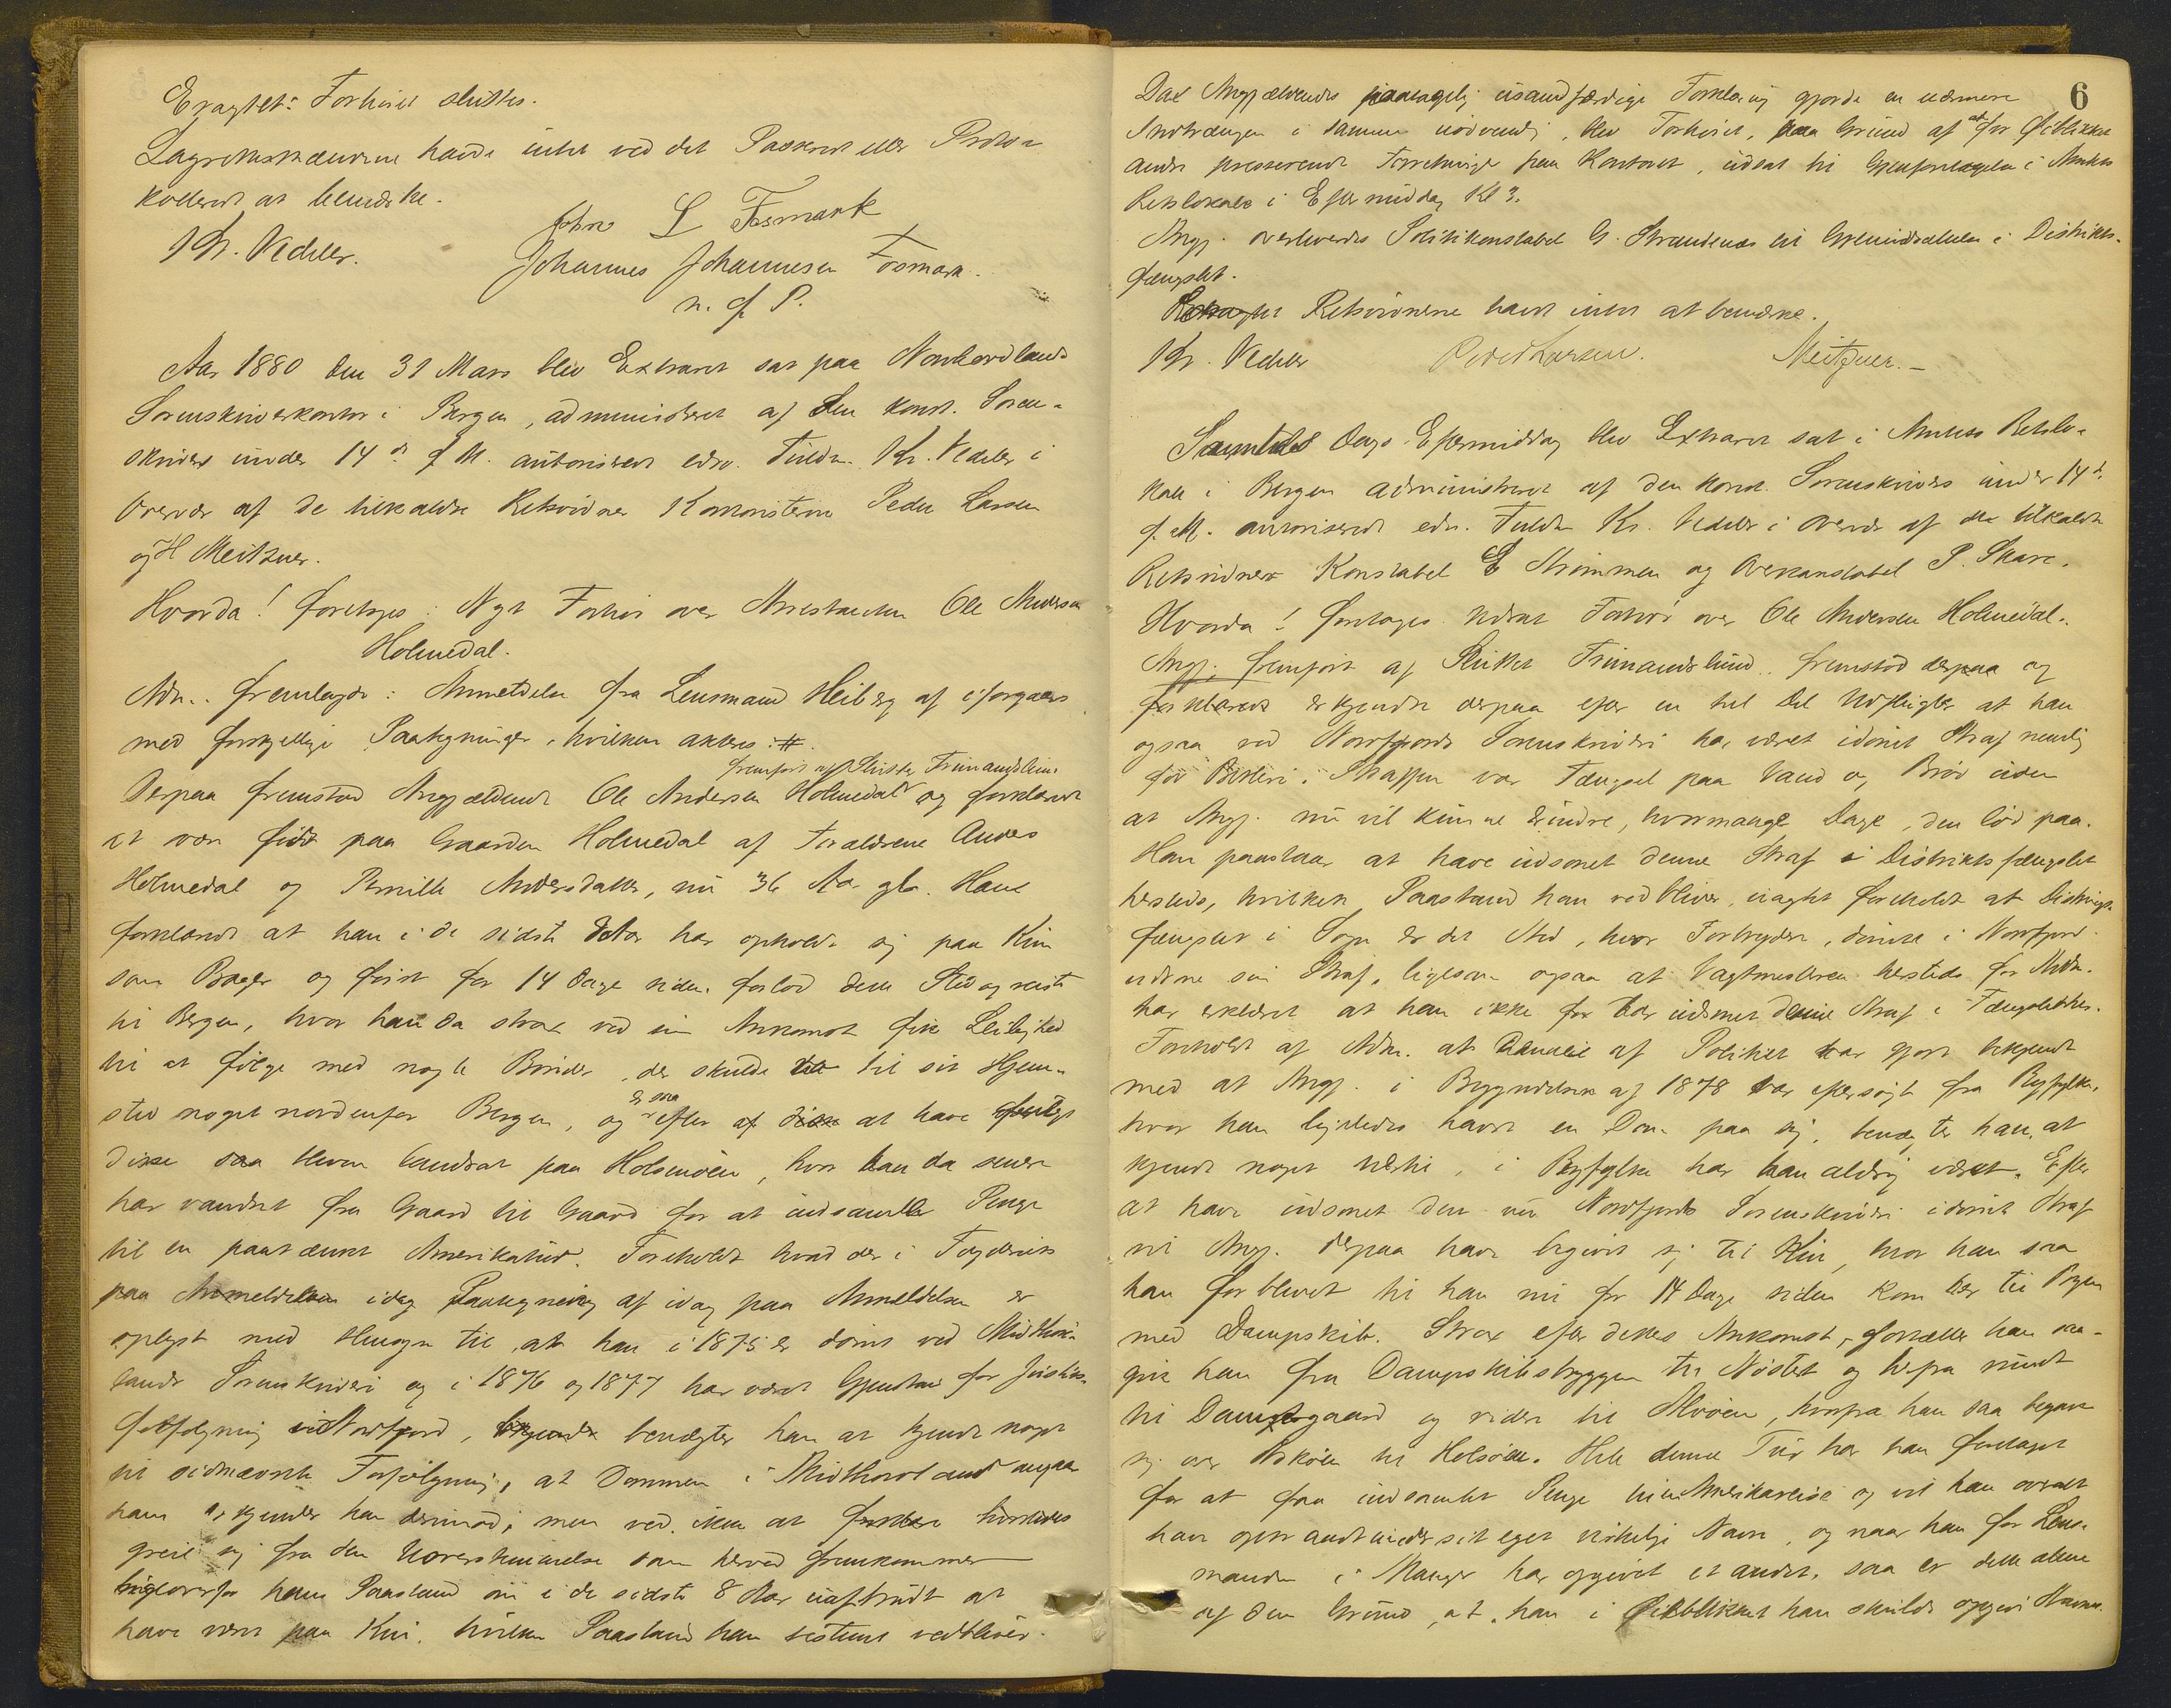 Eragtet: Forhøret sluttes.
Lagrettesmændene havde intet ved det Passered eller Proto-
kolleret at bemærke.
Kr. Vedeler. John L Fosmark
Johannes Johannesen Fosmark.
m. f. P.
Aar 1880 den 31 Mars blev Extraret sat paa Nordhordlands
Sorenskriverkontor i Bergen, administreret af den konst. Soren-
skriver under 14de f. M. autoriseret edsv. Fuldm. Kr. Vedeler i
Overvær af de tilkaldte Retsvidner Kontoristerne Peder Larsen
og H Meitzner.
Hvorda! foretoges: Nyt Forhør over Arrestanten Ole Andersen
Holmedal.
Adm. fremlagde: Anmeldelse fra Lensmand Heiberg af iforgaars
med forskjellige Paategninger, hvilken akteres: #.
fremført af Slutter Trimandslund
Derpaa fremstod Angjældende Ole Andersen Holmedal og forklarede
at være født paa Gaarden Holmedal af Forældrene Anders
Holmedal og Pernille Andersdatter, nu 36 Aar gl. Han
forklarede at han i de sidste 8 Aar har opholdt sig paa Kin
som Bager og først for 14 Dage siden forlod dette Sted og reiste
til Bergen, hvor han da strax ved sin Ankomst fik Leilighed
til at følge med nogle Bønder, der skulde til sit Hjem-
sted noget nordenfor Bergen, og er saa efter at have fulgt
disse saa bleven landsat paa Holsenøen, hvor han da senere
har vandret fra Gaard til Gaard for at indsamle Penge
til en paatænkt Amerikatur. Foreholdt hvad der i Fogderiets
Paategning af idag paa Anmeldelsen er
oplyst med Hensyn til, at han i 1875 er dømt ved Midthord-
lands Sorenskriveri og i 1876 og 1877 har været Gjenstand for Justits-
forfølgning i Nordfjord, benægter han at kjende noget
til sidnævnte Forfølgning, at Dommen i Midthordland angaar
ham erkjender han derimod, men ved ikke at
greie sig fra den Uoverstemmelse som herved fremkommer
ligeoverfor hans Paastand om i de sidste 8 Aar uafbrudt at
have været paa Kin, hvilken Paastand han bestemt vedbliver.
6
Da Angjældendes paatagelig usandfærdige Forklaring gjorde en nærmere
Indtrængen i samme nødvendig, blev Forhøret, paa Grund af at for Øieblikket
andre presserende Forretninger paa Kontoret, udsat til Gjenforetagelse i Amtets
Retslokale i Eftermiddag Kl 3.
Angj. overleveredes Politikonstabel G. Strandenæs til Gjenindsættelse i Distrikts-
fængslet.
Retsvidnerne havde intet at bemærke.
Kr. Vedeler Peder Larsen. Meitzner.
Samme Dags Eftermiddag blev Extraret sat i Amtets Retslo-
kale i Bergen administreret af den konst. Sorenskriver under 14de
f. M. autoriserede edsv. Fuldm. Kr. Vedeler i Overvær af de tilkaldte
Retsvidner Konstabel E Strømmen og Overkonstabel P. Skare.
Hvorda! foretoges Udsat Forhør over Ole Andersen Holmedal.
Angj. fremført af Slutter Trimandslund fremstod og
erkjendte derpaa efter en hel Del Udflugter at han
ogsaa ved Nordfjords Sorenskriveri har været idømt Straf nemlig
for Betleri. Straffen var Fængsel paa Vand og Brød uden
at Angj. nu vil kunne erindre, hvormange Dage den lød paa.
Han paastaar at have udsonet denne Straf i Distriktsfængslet
hersteds, hvilken Paastand han vedbliver, uagtet foreholdt at Distrikts-
fængslet i Sogn er det Sted, hvor Forbrydere, dømte i Nordfjord
udsone sin Straf, ligesom ogsaa at Vagtmesteren hersteds for Adm.
har erklæret at han ikke før har udsonet denne Straf i Fængslet her.
Foreholdt af Adm. at denne af Politiet var gjort bekjendt
med at Angj. i Begyndelsen af 1878 var eftersøgt fra Ryfylke,
hvor han ligeledes havde en Dom paa sig, benægter han, at
kjende noget dertil, i Ryfylke har han aldrig været. Efter
at have udsonet den ved Nordfjords Sorenskriveri idømte Straf
vil Angj. derpaa have begivet sig til Kin, hvor han saa
har forblevet til han nu for 14 Dage siden kom her til Bergen
med Dampskib. Strax efter dettes Ankomst, fortæller han saa-
gik han fra Dampskibsbryggen til Nøstet og derfra rundt
til Damsgaard og videre til Alvøen, hvorfra han saa begav
sig over Askøen til Holsøen. Hele denne Tur har han foretaget
for at faa indsamlet Penge til en Amerikareise og vil han overalt
have opgivet sit eget virkelige Navn, og naar han for Lens-
manden i Manger har opgivet et andet, saa er dette alene
af den Grund, at han i Øieblikket han skulde opgive Navnet